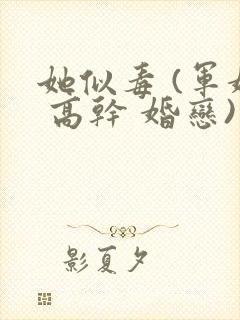 她似毒(軍婚
高幹 婚戀)
影夏夕